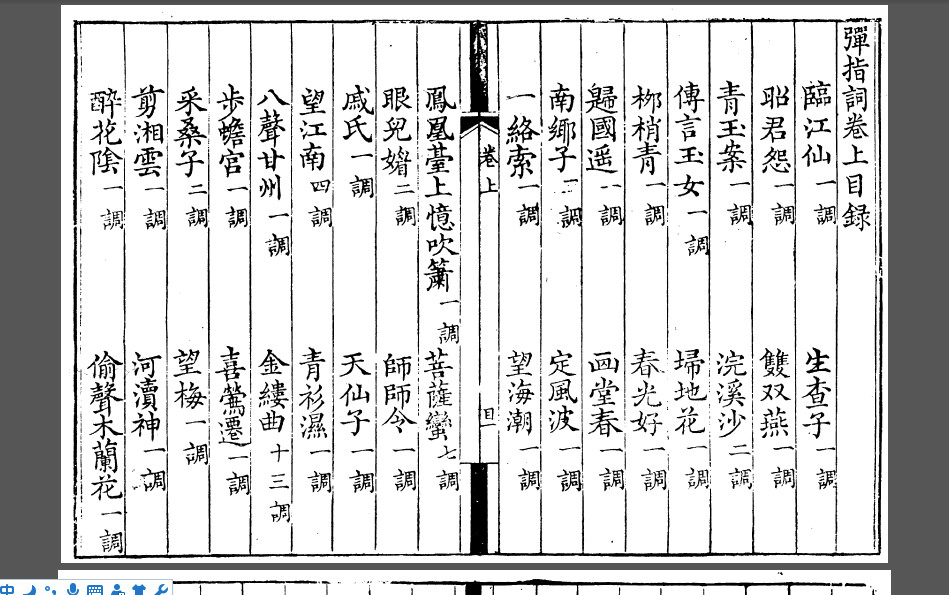 彈指詞卷上目録
臨江仙一調　生查子一調
昭君怨一調　雙双燕一調
青玉案一調　浣溪沙二調
傳言玉女一調　埽地花一調
柳梢青一調　春光好一調
歸國遥一調　画堂春一調
南鄉子二調　定風波一調
一絡索一調　望海潮一調
卷上　目一
鳳凰臺上憶吹簫一調　菩薩蠻七調
眼兒媚二調　師師令一調
戚氏一調　天仙子一調
望江南四調　青衫濕一調
八聲甘州一調　金縷曲十三調
步蟾宮一調　喜鶯遷一調
采桑子二調　望梅一調
剪湘雲一調　河瀆神一調
醉花陰一調　偷聲木蘭花一調
中